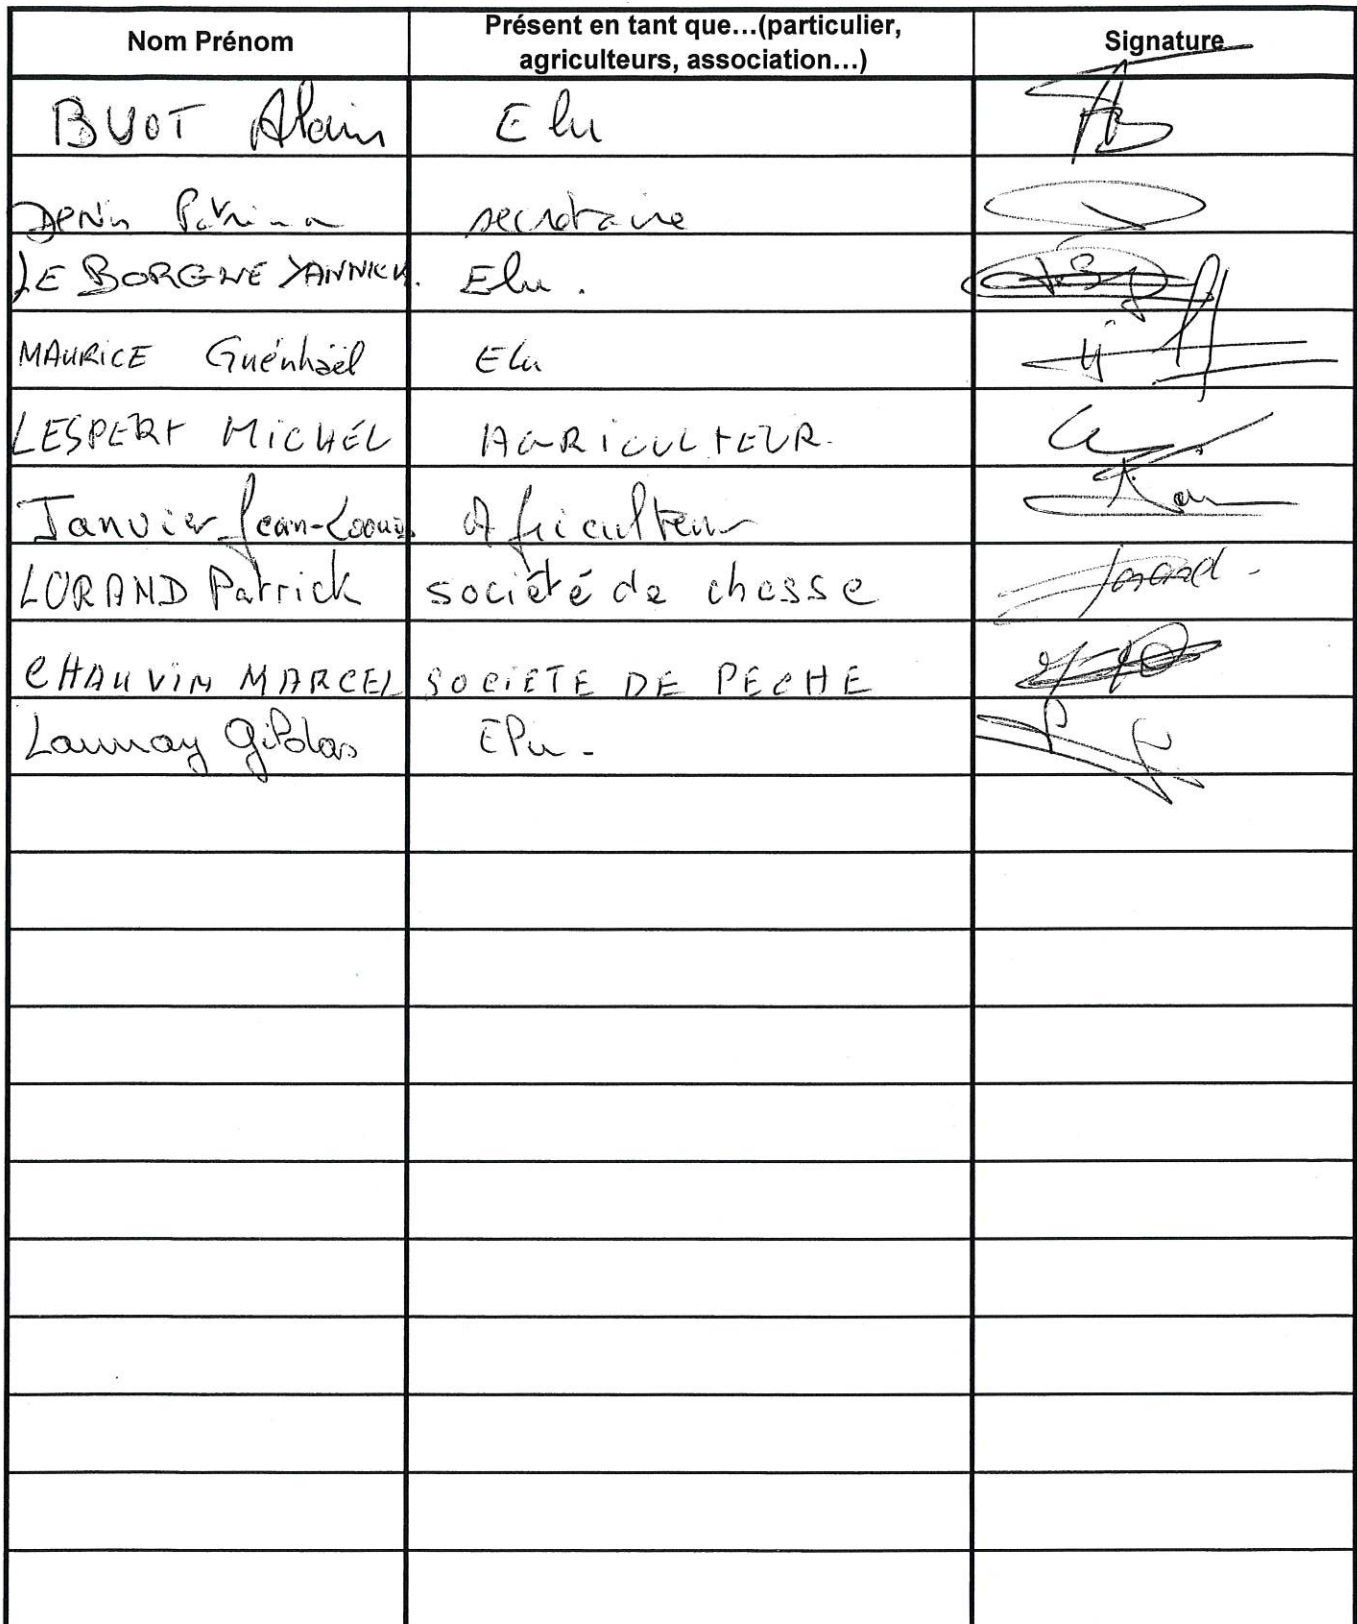 Nom Prénom
Présent en tant que...(particulier,
agriculteurs, association...)
Signature
BUOT Alain Elu AB
Denis secretaire
LE BORGNE YANNICK. Elu.
MAURICE Guénhaël Elu
LESPERT MICHEL AGRICULTEUR.
Janvier Jean-Louis Agriculteur
LORAND Patrick société de chasse Lorand
CHAUVIN MARCEL SOCIETE DE PECHE
Launay Gildas Elu-